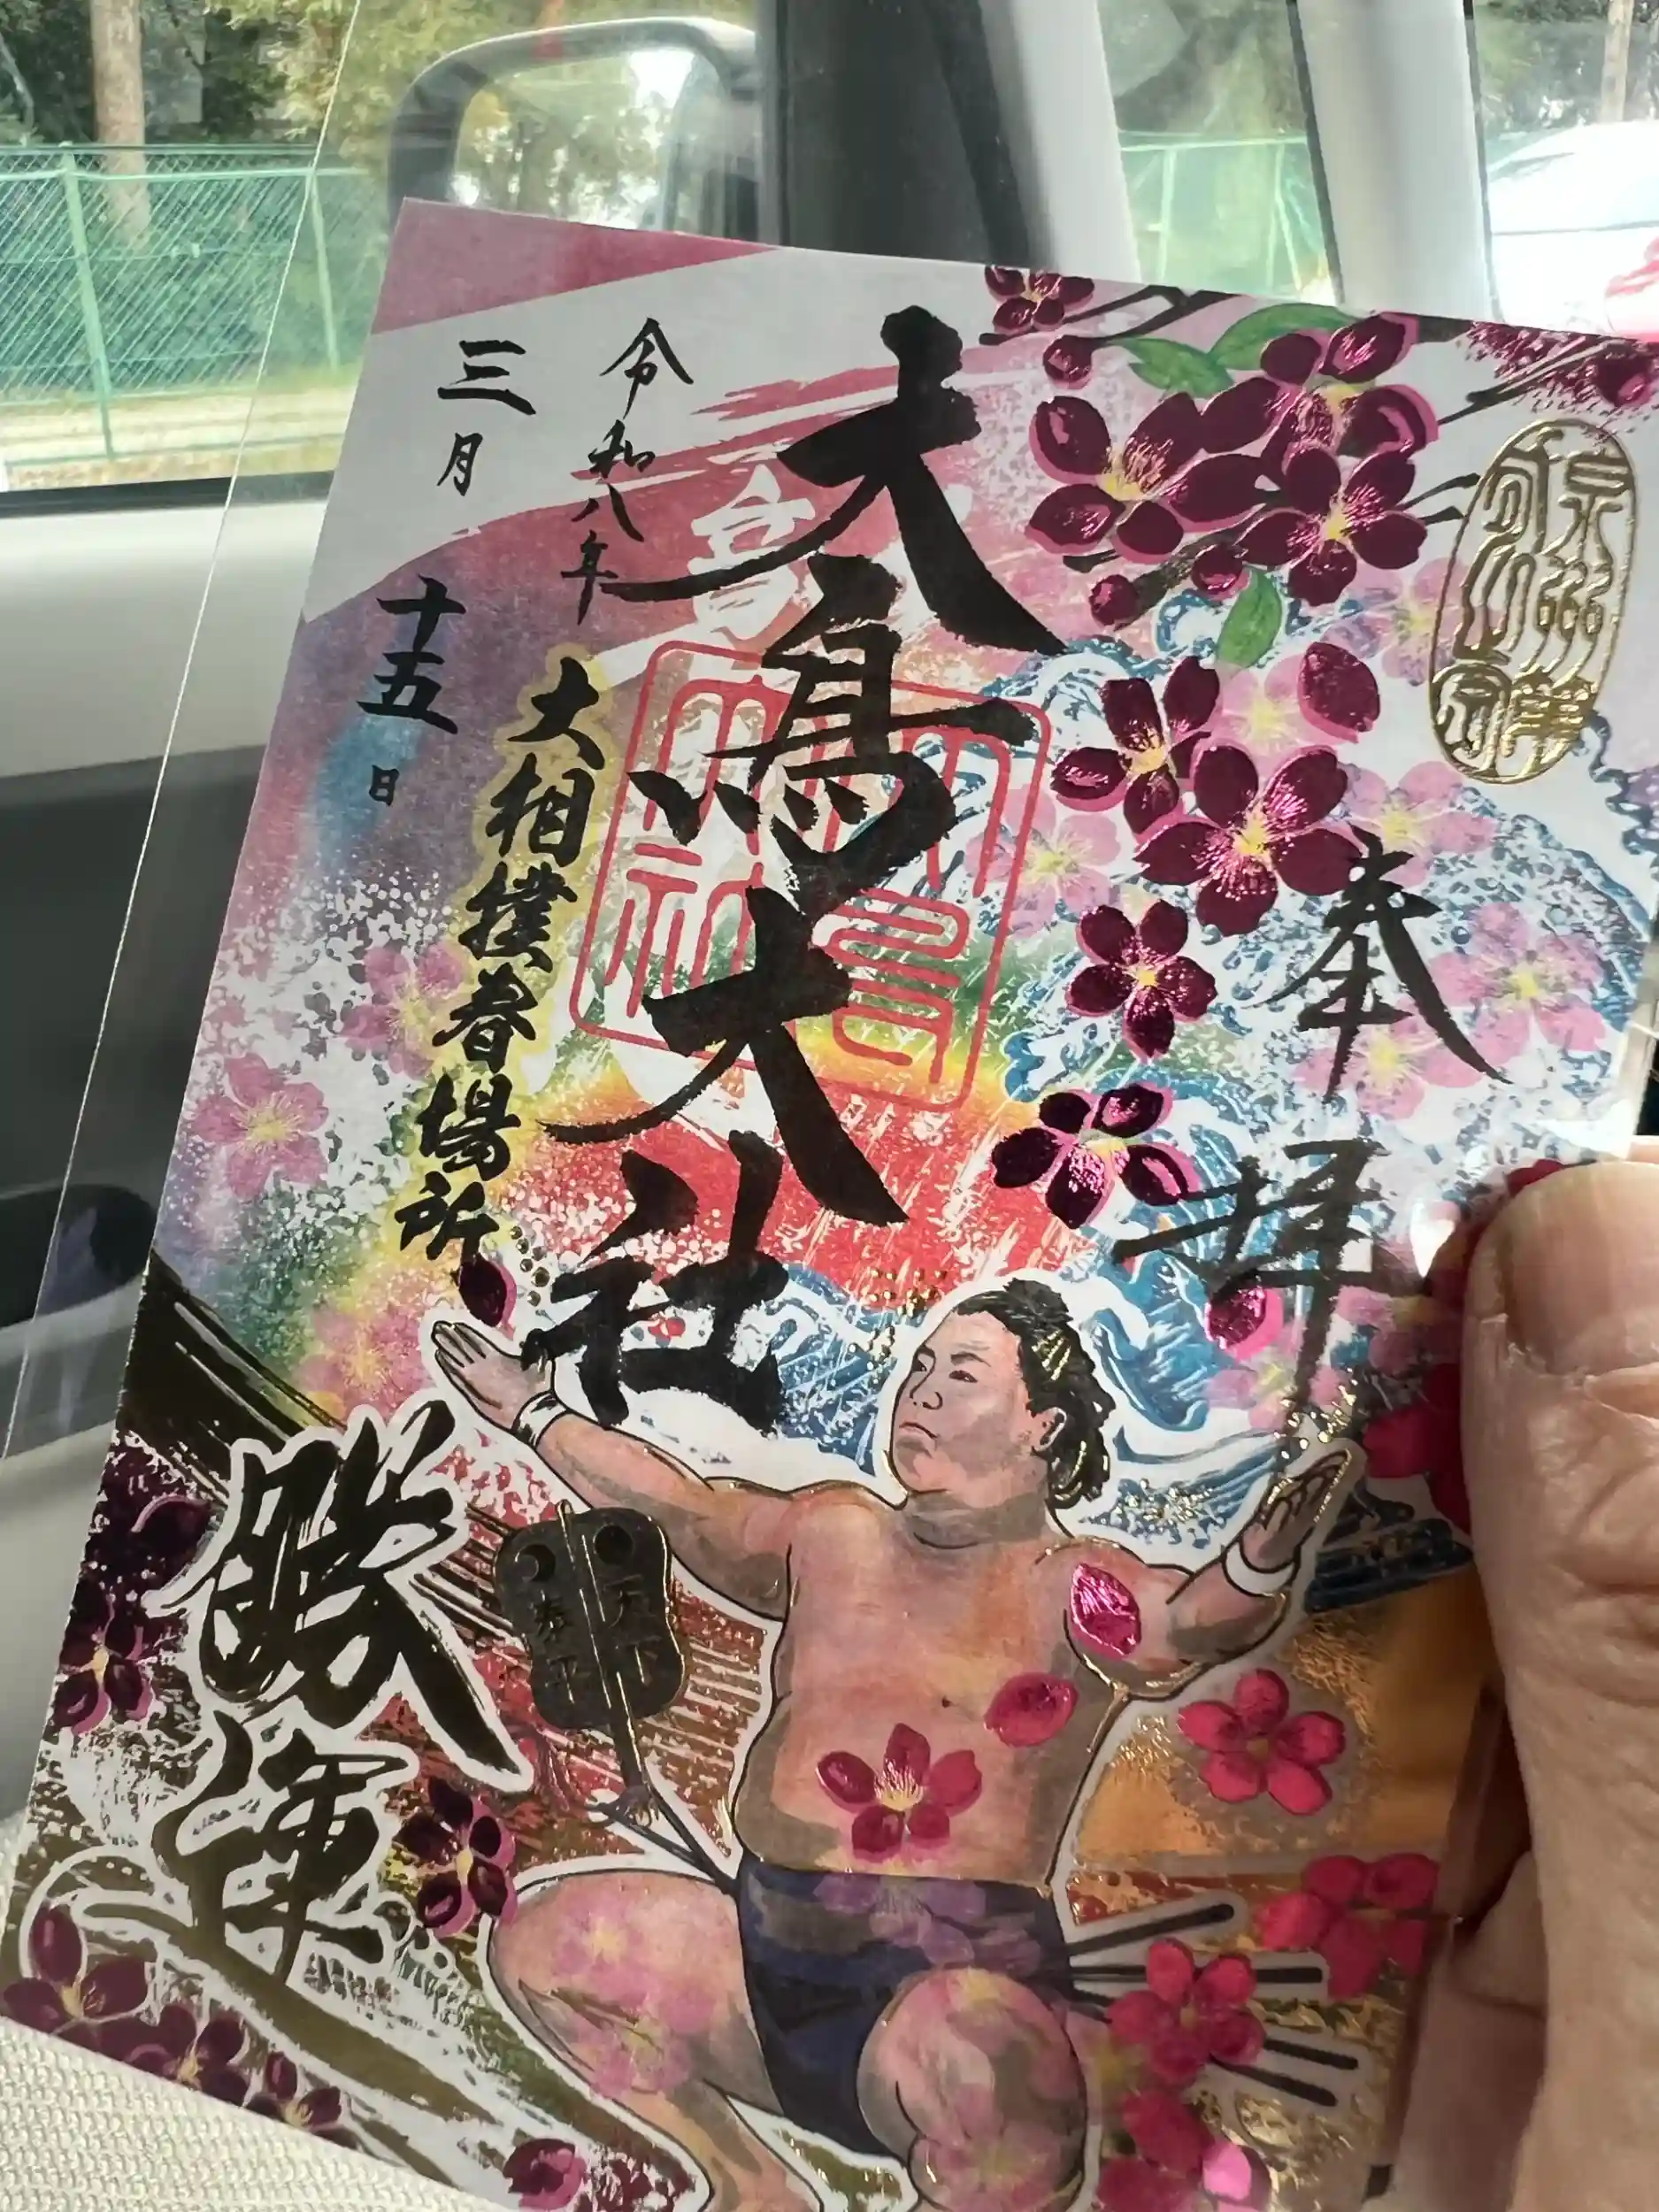 奉拝
大鳥大社
大相撲春場所
令和八年
三月十五日
勝運
天下
泰平